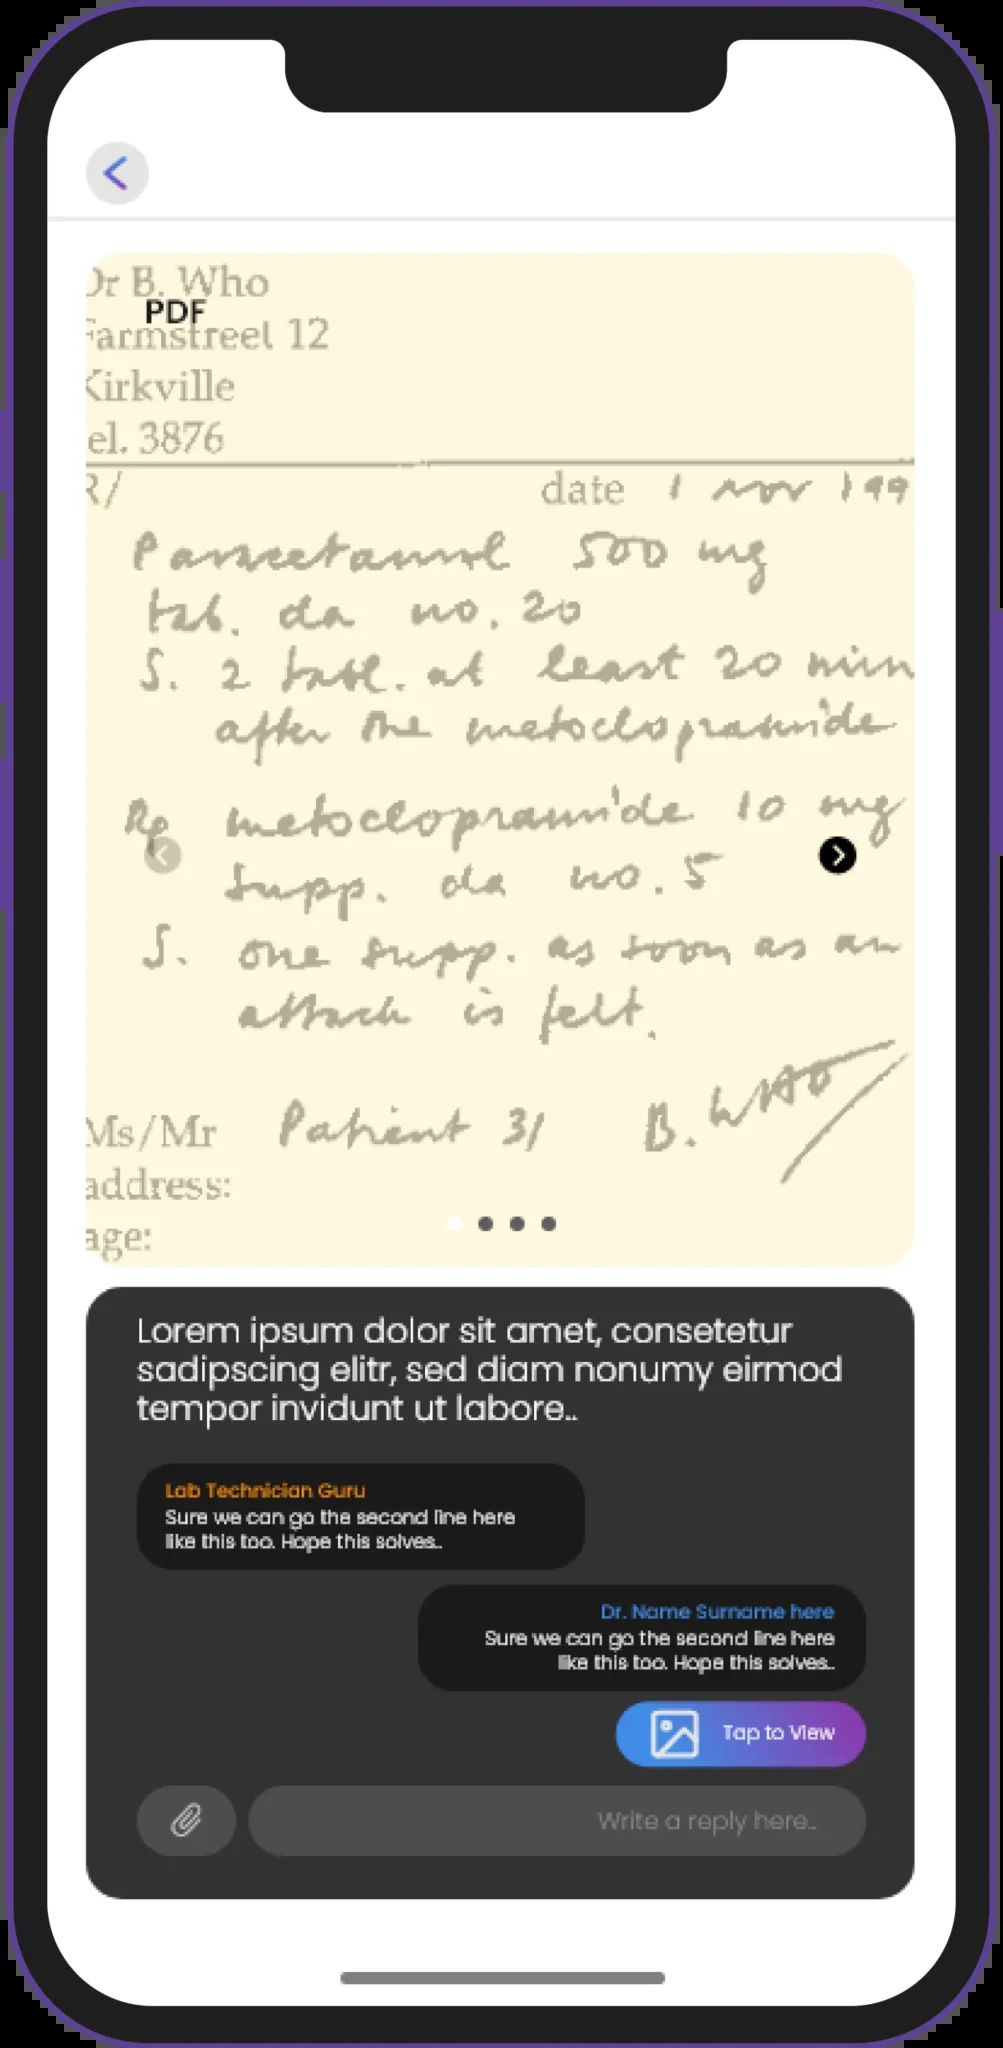 Dr B. Who
PDF
Farmstreet 12
Kirkville
el. 3876
R/ date 1 nov 199
Paracetamol 500 mg
tab. da no. 20
S. 2 tabl. at least 20 min
after the metoclopramide
Rp metoclopramide 10 mg
supp. da no. 5
S. one supp. as soon as an
attack is felt.
Ms/Mr Patient 31 B. WHO
address:
age:
Lorem ipsum dolor sit amet, consetetur
sadipscing elitr, sed diam nonumy eirmod
tempor invidunt ut labore..
Lab Technician Guru
Sure we can go the second line here
like this too. Hope this solves..
Dr. Name Surname here
Sure we can go the second line here
like this too. Hope this solves..
Tap to View
Write a reply here..